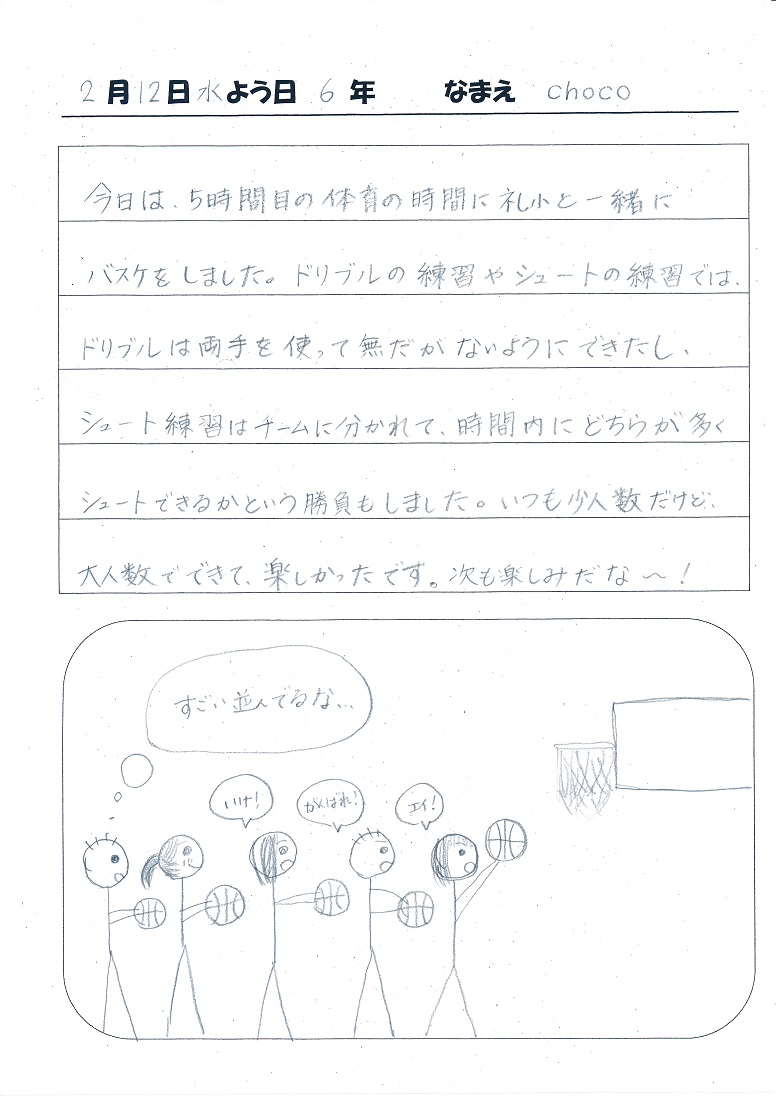 2月12日水よう日 6年 なまえ choco
今日は、5時間目の体育の時間に礼小と一緒に
バスケをしました。ドリブルの練習やシュートの練習では、
ドリブルは両手を使って無だがないようにできたし、
シュート練習はチームに分かれて、時間内にどちらが多く
シュートできるかという勝負もしました。いつも少人数だけど、
大人数でできて、楽しかったです。次も楽しみだな～！
すごい並んでるな…
いけ！
がんばれ！
エイ！